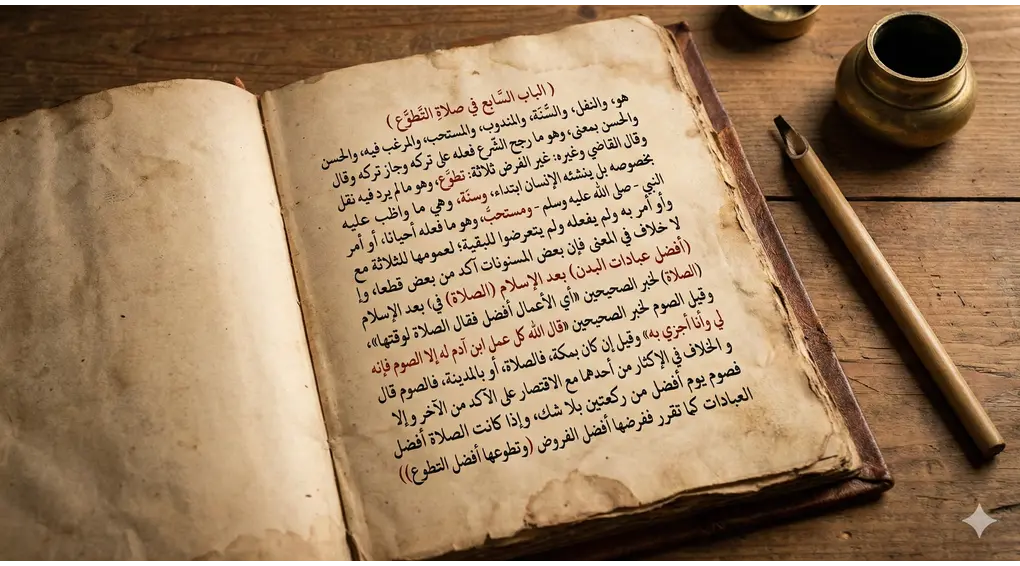 ( الباب السَّابع في صلاةِ التَّطوَّع )
هو، والنفل، والسَّنَة، والمندوب، والمستحب، والمرغب فيه، والحسن
والحسن بمعنى، وهو ما رجح الشّرع فعله على تركه وجاز تركه وقال
وقال القاضي وغيره: غير الفرض ثلاثة: تطوَّع، وهو ما لم يرد فيه نقل
بخصوصه بل ينشئه الإنسان ابتداء، وسنّة، وهي ما واظب عليه
النبي - صلى الله عليه وسلم - ومستحبُّ، وهو ما فعله أحيانا، أو أمر
وأو أمر به ولم يفعله ولم يتعرضوا للبقية؛ لعمومها للثلاثة مع
لا خلاف في المعنى فإن بعض المسنونات آكد من بعض قطعا، وإ
(أفضل عبادات البدن) بعد الإسلام (الصلاة) في) بعد الإسلام
(الصلاة) لخبر الصحيحين «أي الأعمال أفضل فقال الصلاة لوقتها»،
وقيل الصوم لخبر الصحيحين «قال الله كل عمل ابن آدم له إلا الصوم فإنه
لي وأنا أجزي به» وقيل إن كان بمكة، فالصلاة، أو بالمدينة، فالصوم قال
و الخلاف في الإكثار من أحدهما مع الاقتصار على الآكد من الآخر وإلا
فصوم يوم أفضل من ركعتين بلا شك، وإذا كانت الصلاة أفضل
العبادات كما تقرر ففرضها أفضل الفروض (وتطوعها أفضل التطوع))